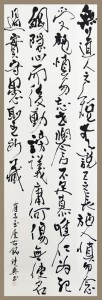 無道人之短無說己之長施人慎勿念
受施慎勿忘世譽不足慕唯仁為紀
綱隱心而後動謗議庸何傷無使名
過實守愚聖所臧 崔子玉座右銘